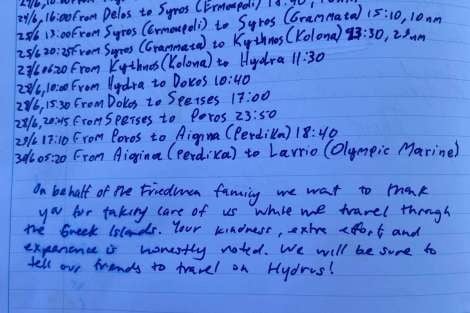 24/6, 16:00 From Delos to Syros (Ermoupoli)
25/6 13:00 From Syros (Ermoupoli) to Syros (Grammata) 15:10, 10nm
25/6 20:25 From Syros (Grammata) to Kythnos (Kolona) 23:30, nm
27/6 06:20 From Kythnos (Kolona) to Hydra 11:30
28/6, 10:00 From Hydra to Dokos 10:40
28/6, 15:30 From Dokos to Spetses 17:00
28/6, 20:45 From Spetses to Poros 23:50
29/6 17:10 From Poros to Aigina (Perdika) 18:40
30/6 05:20 From Aigina (Perdika) to Lavrio (Olympic Marine)
On behalf of the Friedman family we want to thank
you for taking care of us while we travel through
the Greek Islands. Your kindness, extra effort and
experience is honestly noted. We will be sure to
tell our friends to travel on Hydrus!